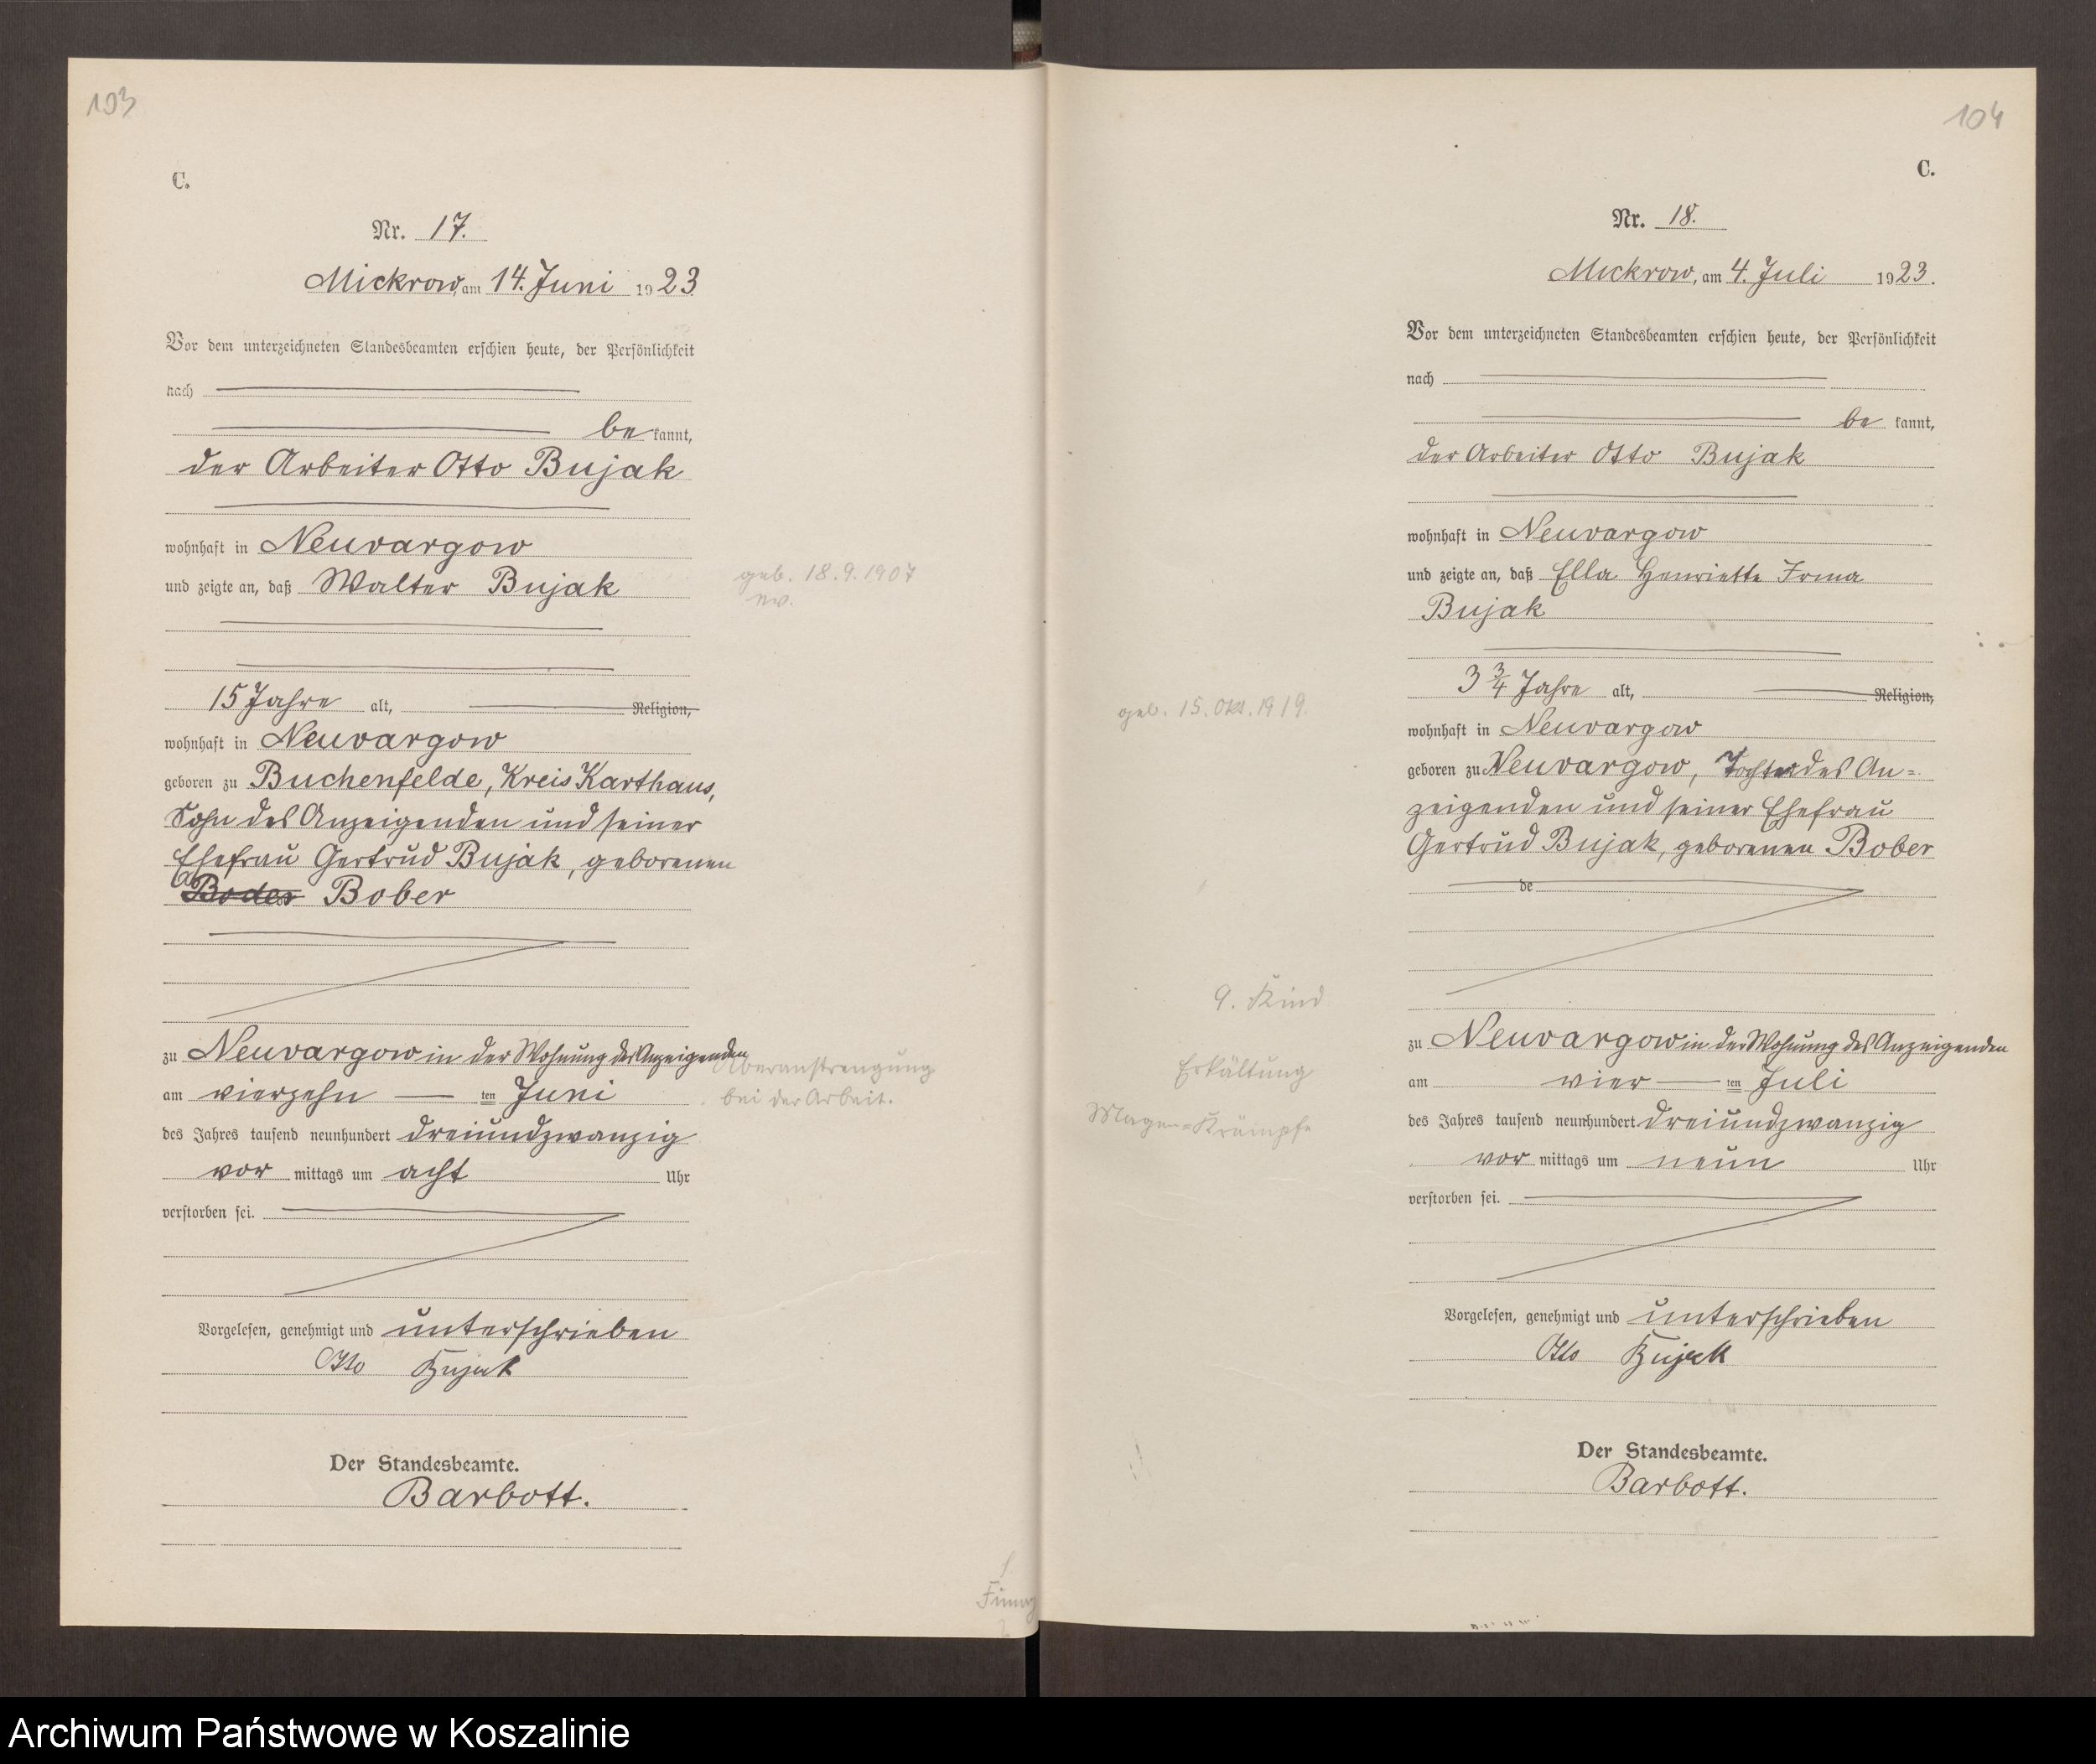 103
C.
Nr. 17.
Mickrow, am 14. Juni 1923
Vor dem unterzeichneten Standesbeamten erschien heute, der Persönlichkeit
nach
be kannt,
der Arbeiter Otto Bujak
wohnhaft in Neuvargow
und zeigte an, daß Walter Bujak
geb. 18.9.1907
ev.
15 Jahre alt, Religion,
wohnhaft in Neuvargow
geboren zu Buchenfelde, Kreis Karthaus,
Sohn des Anzeigenden und seiner
Ehefrau Gertrud Bujak, geborenen
Boder Bober
zu Neuvargow in der Wohnung des Anzeigenden
Überanstrengung
am vierzehn ten Juni
bei der Arbeit.
des Jahres tausend neunhundert dreiundzwanzig
vor mittags um acht Uhr
verstorben sei.
Vorgelesen, genehmigt und unterschrieben
Otto Bujak
Der Standesbeamte.
Barbott.
104
C.
Nr. 18.
Mickrow, am 4. Juli 1923.
Vor dem unterzeichneten Standesbeamten erschien heute, der Persönlichkeit
nach
be kannt,
der Arbeiter Otto Bujak
wohnhaft in Neuvargow
und zeigte an, daß Ella Henriette Irma
Bujak
3 3/4 Jahre alt, Religion,
geb. 15. Okt. 1919.
wohnhaft in Neuvargow
geboren zu Neuvargow, Tochter des An=
zeigenden und seiner Ehefrau
Gertrud Bujak, geborenen Bober
de
9. Kind
zu Neuvargow in der Wohnung des Anzeigenden
Erkältung
am vier ten Juli
Magen=Krämpfe
des Jahres tausend neunhundert dreiundzwanzig
vor mittags um neun Uhr
verstorben sei.
Vorgelesen, genehmigt und unterschrieben
Otto Bujak
Der Standesbeamte.
Barbott.
Archiwum Państwowe w Koszalinie